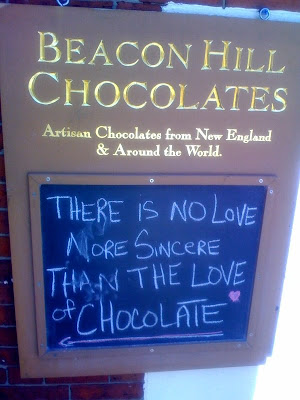 BEACON HILL
CHOCOLATES
Artisan Chocolates from New England
& Around the World.
THERE IS NO LOVE
MORE SINCERE
THAN THE LOVE
of CHOCOLATE